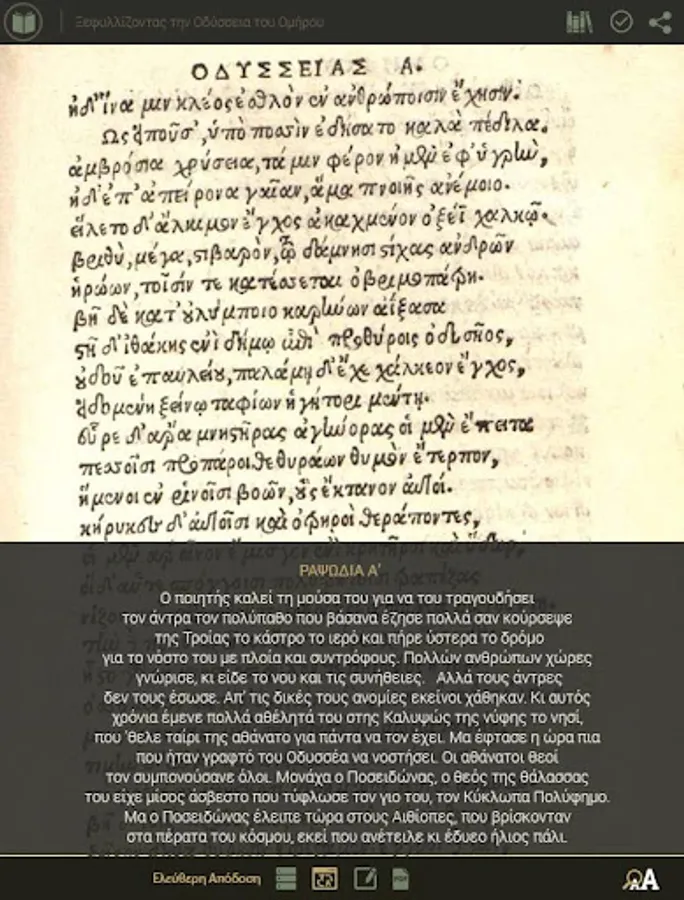 Ξεφυλλίζοντας την Οδύσσεια του Ομήρου
ΟΔΥΣΣΕΙΑΣ Α.
ἠδ' ἵνα μιν κλέος ἐσθλὸν ἐν ἀνθρώποισιν ἔχησιν.
Ὣς εἰποῦσ', ὑπὸ ποσσὶν ἐδήσατο καλὰ πέδιλα.
ἀμβρόσια χρύσεια, τά μιν φέρον ἠμὲν ἐφ' ὑγρὴν,
ἠδ' ἐπ' ἀπείρονα γαῖαν, ἅμα πνοιῇς ἀνέμοιο.
εἵλετο δ' ἄλκιμον ἔγχος ἀκαχμένον ὀξέϊ χαλκῷ.
βριθὺ, μέγα, στιβαρὸν, ᾧ δάμνησι στίχας ἀνδρῶν
ἡρώων, τοῖσίν τε κοτέσσεται ὀβριμοπάτρη.
βῆ δὲ κατ' οὐλύμποιο καρήνων ἀΐξασα
στῆ δ' ἰθάκης ἐνὶ δήμῳ ἐπὶ προθύροις ὀδυσῆος,
οὐδοῦ ἐπ' αὐλείου, παλάμῃ δ' ἔχε χάλκεον ἔγχος,
εἰδομένη ξείνῳ ταφίων ἡγήτορι μέντῃ.
εὗρε δ' ἄρα μνηστῆρας ἀγήνορας οἱ μὲν ἔπειτα
πεσσοῖσι προπάροιθε θυράων θυμὸν ἔτερπον,
ἥμενοι ἐν ῥινοῖσι βοῶν, οὓς ἔκτανον αὐτοί.
κήρυκες δ' αὐτοῖσι καὶ ὀτρηροὶ θεράποντες,
ΡΑΨΩΔΙΑ Α'
Ο ποιητής καλεί τη μούσα του για να του τραγουδήσει
τον άντρα τον πολύπαθο που βάσανα έζησε πολλά σαν κούρσεψε
της Τροίας το κάστρο το ιερό και πήρε ύστερα το δρόμο
για το νόστο του με πλοία και συντρόφους. Πολλών ανθρώπων χώρες
γνώρισε, κι είδε το νου και τις συνήθειες. Αλλά τους άντρες
δεν τους έσωσε. Απ' τις δικές τους ανομίες εκείνοι χάθηκαν. Κι αυτός
χρόνια έμενε πολλά αθέλητά του στης Καλυψώς της νύφης το νησί,
που 'θελε ταίρι της αθάνατο για πάντα να τον έχει. Μα έφτασε η ώρα πια
που ήταν γραφτό του Οδυσσέα να νοστήσει. Οι αθάνατοι θεοί
τον συμπονούσανε όλοι. Μονάχα ο Ποσειδώνας, ο θεός της θάλασσας
του είχε μίσος άσβεστο που τύφλωσε τον γιο του, τον Κύκλωπα Πολύφημο.
Μα ο Ποσειδώνας έλειπε τώρα στους Αιθίοπες, που βρίσκονταν
στα πέρατα του κόσμου, εκεί που ανέτειλε κι έδυεο ήλιος πάλι.
Ελεύθερη Απόδοση
PDF
AA